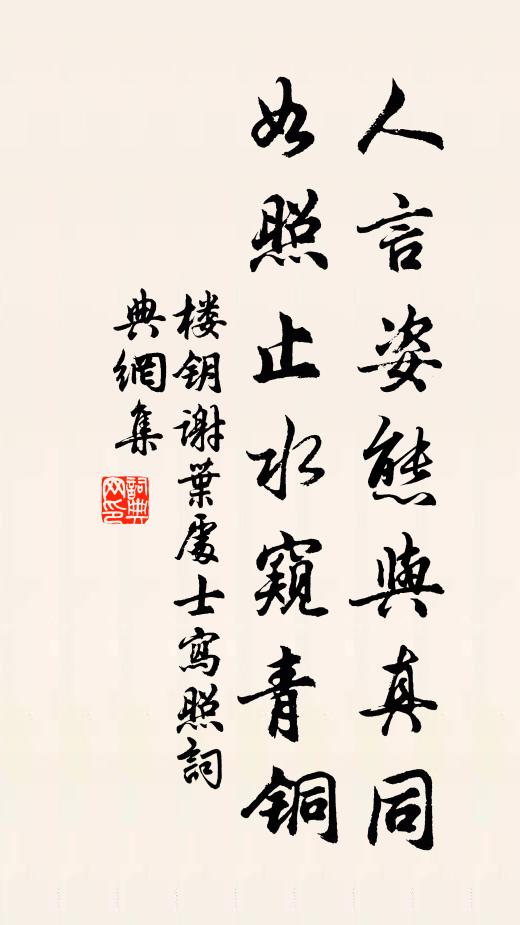 人言姿態與真同
如照止水窺青铜
楼钥谢葉處士寫照詞
典網集
詞典網印